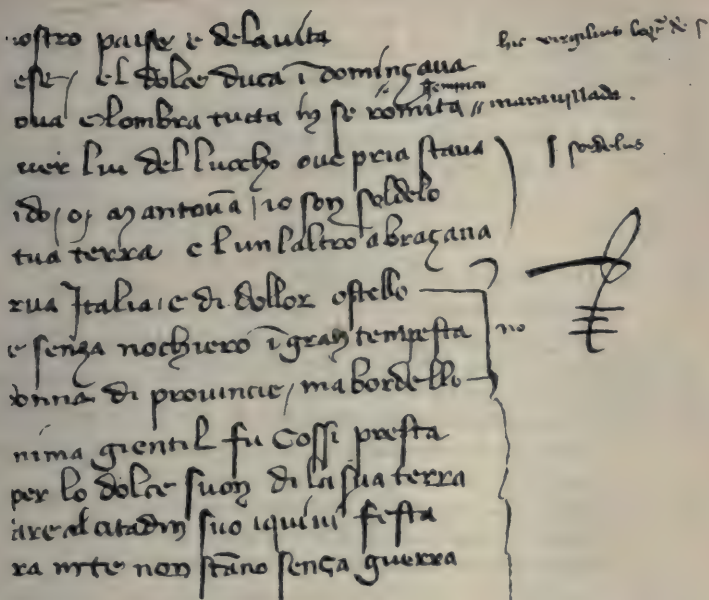 ostro paise e dela uita
ese / el dolce duca ĩ dominçaua
hic virgilius
oua e lombra tucta in se romita // marauillada .
uer lui del luocho oue pria staua
sordelus
ido / o mantouã / io son soldelo
tua terra e lun laltro abraçaua
rua Italia e di dollor ostello
e senza nochiero ĩ gran tempesta
no
onna di prouincie / ma bordello
nima gientil fu cossi presta
per lo dolce suon di la sua terra
are al citadin suo iquiui festa
ra in te non stãno sença guerra